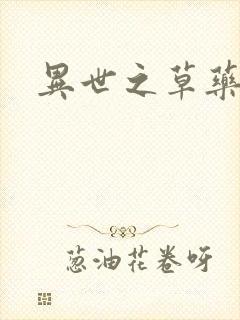 異世之草藥
葱油花卷呀